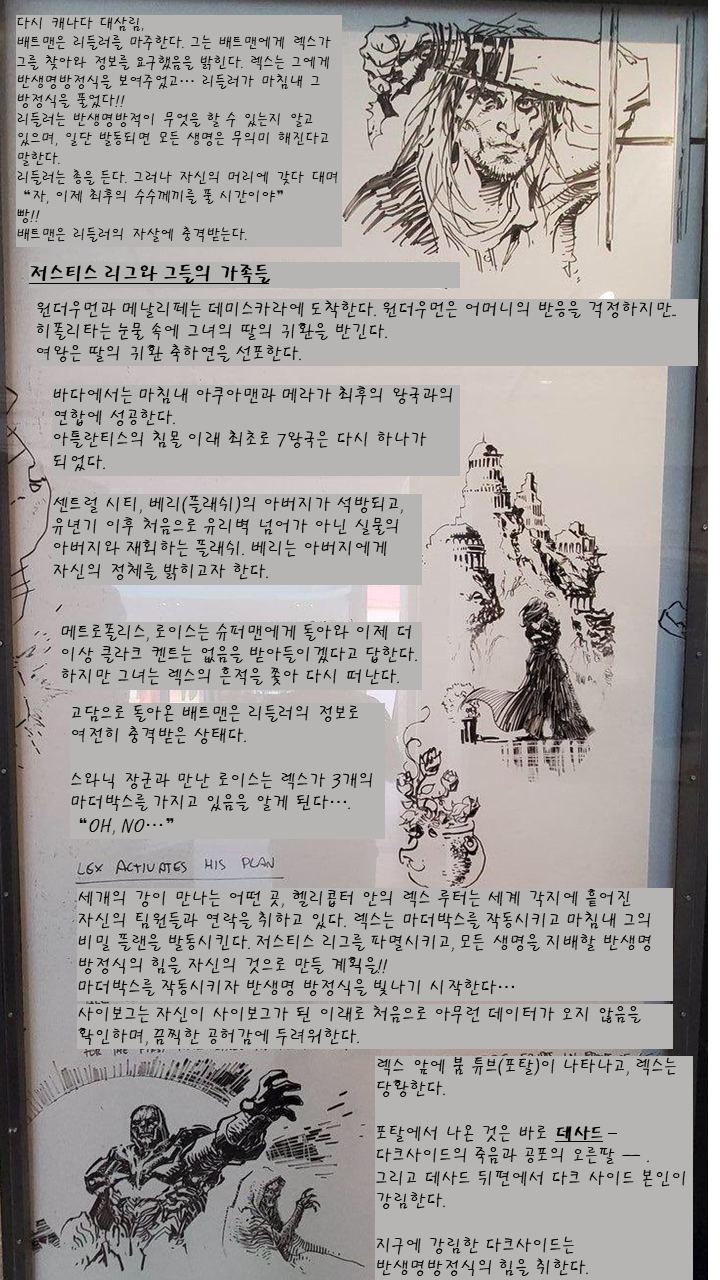 다시 캐나다 대삼림,
배트맨은 리들러를 마주한다. 그는 배트맨에게 렉스가
그를 찾아와 정보를 요구했음을 밝힌다. 렉스는 그에게
반생명방정식을 보여주었고… 리들러가 마침내 그
방정식을 풀었다!!
리들러는 반생명방적이 무엇을 할 수 있는지 알고
있으며, 일단 발동되면 모든 생명은 무의미 해진다고
말한다.
리들러는 총을 든다. 그러나 자신의 머리에 갖다 대며
“자, 이제 최후의 수수께끼를 풀 시간이야”
빵!!
배트맨은 리들러의 자살에 충격받는다.
저스티스 리그와 그들의 가족들
원더우먼과 메날리페는 데미스카라에 도착한다. 원더우먼은 어머니의 반응을 걱정하지만..
히폴리타는 눈물 속에 그녀의 딸의 귀환을 반긴다.
여왕은 딸의 귀환 축하연을 선포한다.
바다에서는 마침내 아쿠아맨과 메라가 최후의 왕국과의
연합에 성공한다.
아틀란티스의 침몰 이래 최초로 7왕국은 다시 하나가
되었다.
센트럴 시티, 베리(플래쉬)의 아버지가 석방되고,
유년기 이후 처음으로 유리벽 넘어가 아닌 실물의
아버지와 재회하는 플래쉬. 베리는 아버지에게
자신의 정체를 밝히고자 한다.
메트로폴리스, 로이스는 슈퍼맨에게 돌아와 이제 더
이상 클라크 켄트는 없음을 받아들이겠다고 답한다.
하지만 그녀는 렉스의 흔적을 쫓아 다시 떠난다.
고담으로 돌아온 배트맨은 리들러의 정보로
여전히 충격받은 상태다.
스와닉 장군과 만난 로이스는 렉스가 3개의
마더박스를 가지고 있음을 알게 된다….
“OH, NO…”
LEX ACTIVATES HIS PLAN
세개의 강이 만나는 어떤 곳, 헬리콥터 안의 렉스 루터는 세계 각지에 흩어진
자신의 팀원들과 연락을 취하고 있다. 렉스는 마더박스를 작동시키고 마침내 그의
비밀 플랜을 발동시킨다. 저스티스 리그를 파멸시키고, 모든 생명을 지배할 반생명
방정식의 힘을 자신의 것으로 만들 계획을!!
마더박스를 작동시키자 반생명 방정식을 빛나기 시작한다…
사이보그는 자신이 사이보그가 된 이래로 처음으로 아무런 데이터가 오지 않음을
확인하며, 끔찍한 공허감에 두려워한다.
FOR THE FIRST
렉스 앞에 붐 튜브(포탈)이 나타나고, 렉스는
당황한다.
포탈에서 나온 것은 바로 데사드 –
다크사이드의 죽음과 공포의 오른팔 –– .
그리고 데사드 뒤편에서 다크 사이드 본인이
강림한다.
지구에 강림한 다크사이드는
반생명방정식의 힘을 취한다.